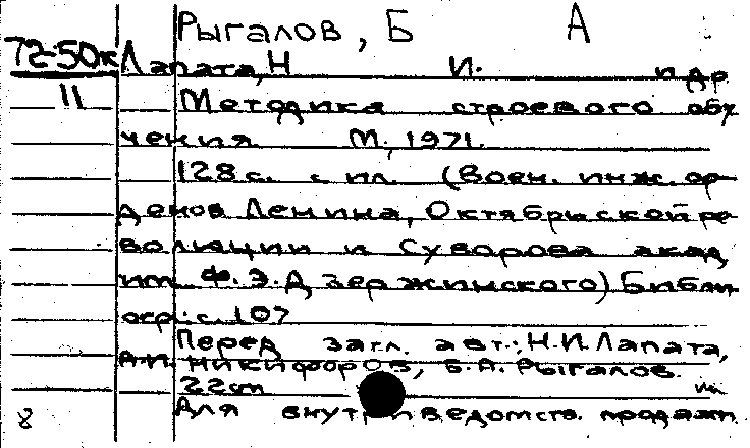 Рыгалов, Б А
72-50к Лапата, Н И. и др
11 Методика строевого обу
чения М., 1971.
128 с. с ил. (Воен. инж. ор-
денов Ленина, Октябрьской ре
волюции и Суворова акад.
им. Ф. Э. Дзержинского) Библи
огр: с. 107
Перед загл. авт.: Н.И. Лапата,
А.И. Никифоров, Б.А. Рыгалов.
22 cm
8 Для внутриведомств. продажи